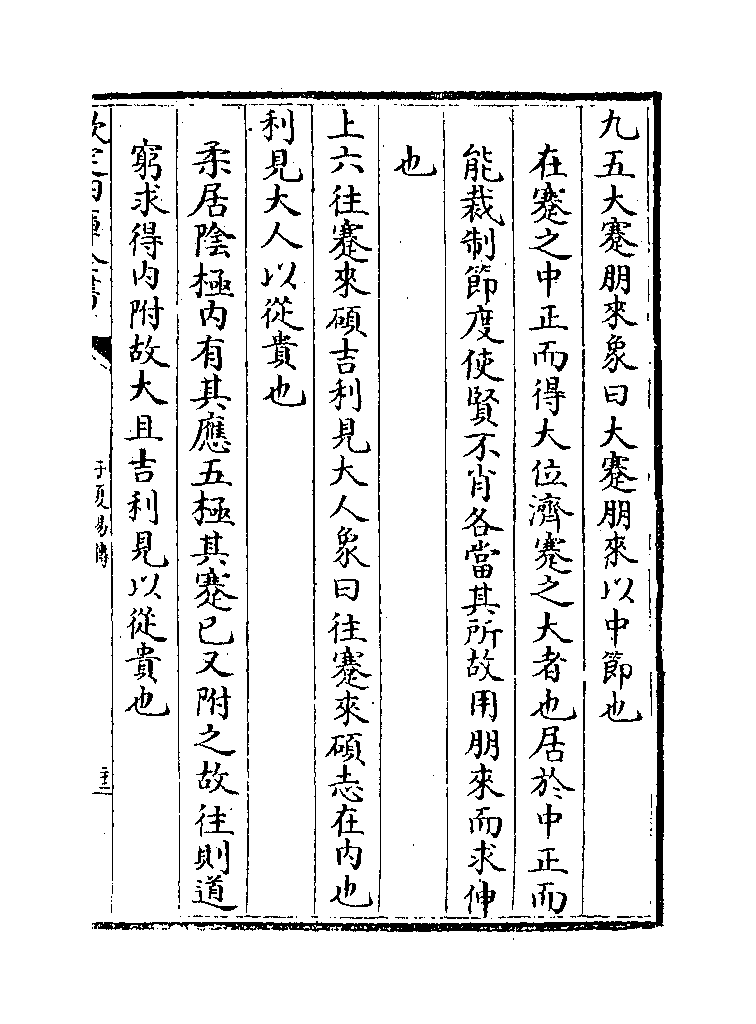 九五大蹇朋來象曰大蹇朋來以中節也
在蹇之中正而得大位濟蹇之大者也居於中正而
能裁制節度使賢不肖各當其所故用朋來而求伸
也
上六往蹇來碩吉利見大人象曰往蹇來碩志在内也
利見大人以從貴也
柔居陰極内有其應五極其蹇已又附之故往則道
窮求得内附故大且吉利見以從貴也
子夏易傳